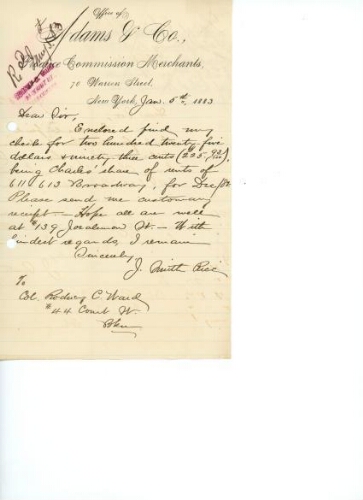 Office of
Adams & Co.,
Produce Commission Merchants,
70 Warren Street.
New York, Jan. 5th, 1883
Dear Sir,
Enclosed find my
check for two hundred twenty five
dollars & ninety three cents (225 93/100),
being Charles' share of rents of
611 & 613 Broadway, for Dec/82
Please send me customary
receipt - Hope all are well
at #139 Joralemon St. - With
kindest regards, I remain
Sincerely
J. Smith Rice
To
Col. Rodney C. Ward
#44 Court St.
Bklyn